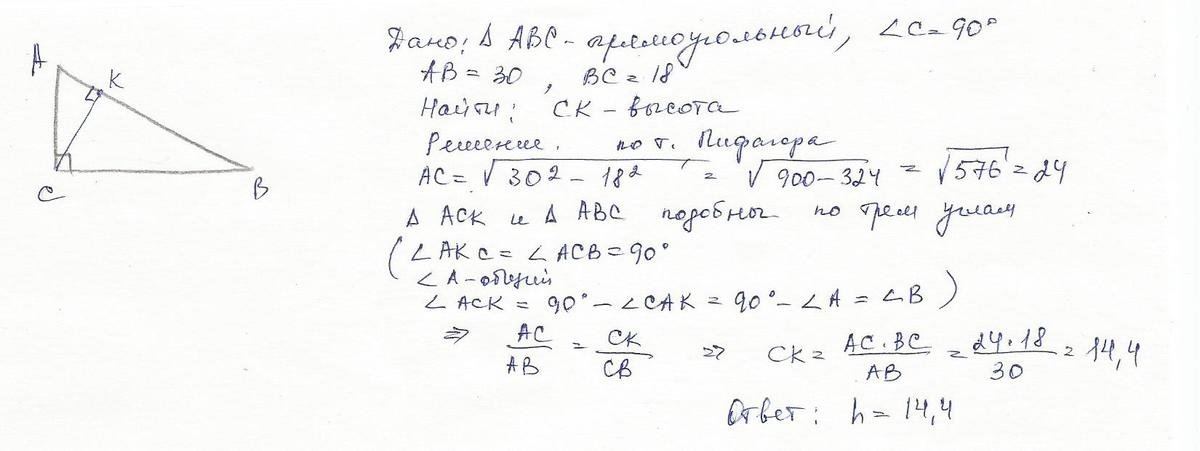 Дано: Δ ABC - прямоугольный, ∠C = 90°
AB = 30, BC = 18
Найти: CK - высота
Решение. по т. Пифагора
AC = √30² - 18² = √900 - 324 = √576 = 24
Δ ACK и Δ ABC подобны по трем углам
(∠AKC = ∠ACB = 90°
∠A - общий
∠ACK = 90° - ∠CAK = 90° - ∠A = ∠B)
⇒ AC/AB = CK/CB ⇒ CK = AC·BC/AB = 24·18/30 = 14,4
Ответ: h = 14,4
A
K
C
B